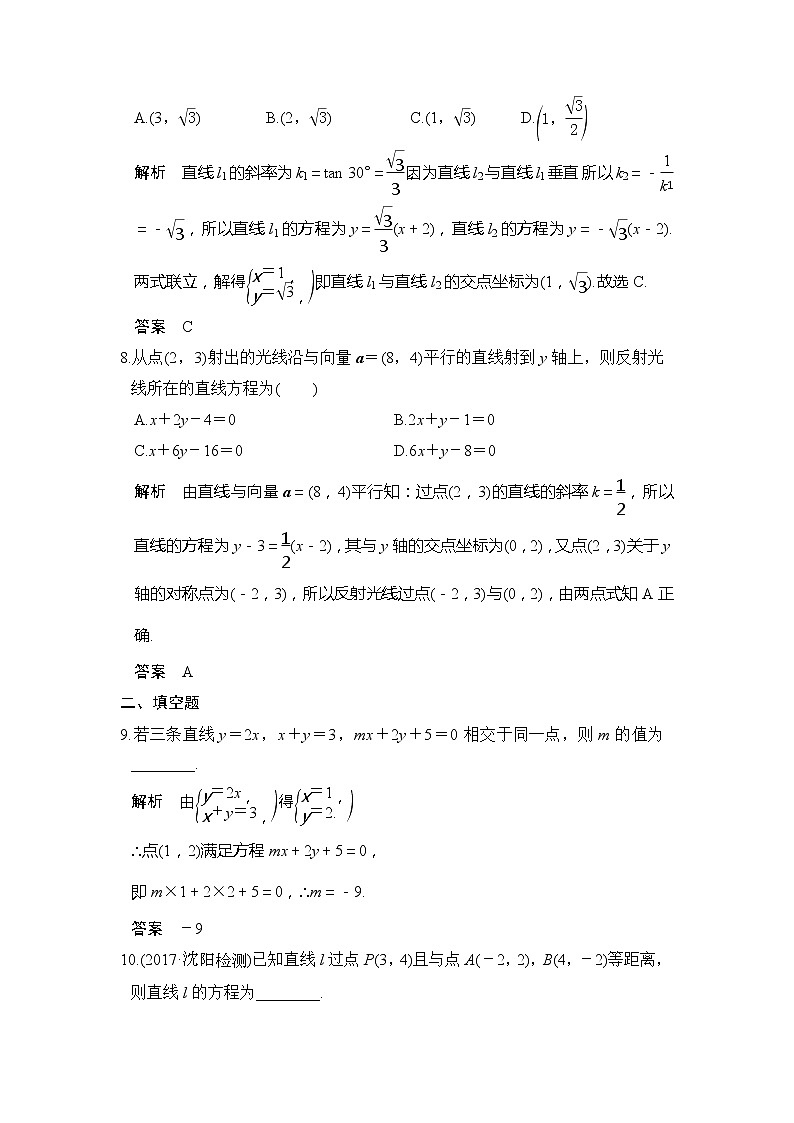 A.(3，√3)　B.(2，√3)　C.(1，√3)　D.(1，√3/2)
解析　直线l₁的斜率为k₁＝tan 30°＝√3/3因为直线l₂与直线l₁垂直 所以k₂＝－1/k₁
＝－√3，所以直线l₁的方程为y＝√3/3(x＋2)，直线l₂的方程为y＝－√3(x－2).
两式联立，解得(x＝1，y＝√3，)即直线l₁与直线l₂的交点坐标为(1，√3).故选C.
答案　C
8.从点(2，3)射出的光线沿与向量a＝(8，4)平行的直线射到y轴上，则反射光
线所在的直线方程为(　　)
A.x＋2y－4＝0　B.2x＋y－1＝0
C.x＋6y－16＝0　D.6x＋y－8＝0
解析　由直线与向量a＝(8，4)平行知：过点(2，3)的直线的斜率k＝1/2，所以
直线的方程为y－3＝1/2(x－2)，其与y轴的交点坐标为(0，2)，又点(2，3)关于y
轴的对称点为(－2，3)，所以反射光线过点(－2，3)与(0，2)，由两点式知A正
确.
答案　A
二、填空题
9.若三条直线y＝2x，x＋y＝3，mx＋2y＋5＝0相交于同一点，则m的值为
________.
解析　由(y＝2x，x＋y＝3，)得(x＝1，y＝2.)
∴点(1，2)满足方程mx＋2y＋5＝0，
即m×1＋2×2＋5＝0，∴m＝－9.
答案　－9
10.(2017·沈阳检测)已知直线l过点P(3，4)且与点A(－2，2)，B(4，－2)等距离，
则直线l的方程为________.